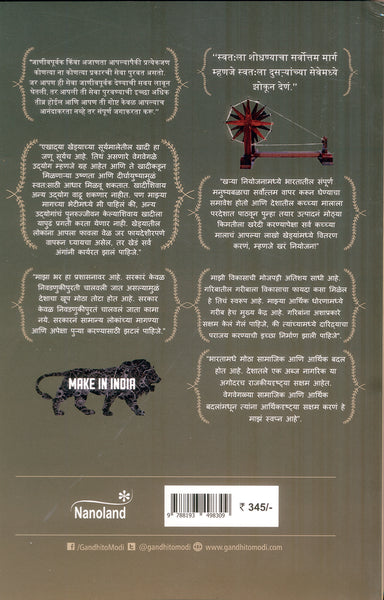 "जाणीवपूर्वक किंवा अजाणता आपल्यापैकी प्रत्येकजण
कोणत्या ना कोणत्या प्रकारची सेवा पुरवत असतो.
जर आपण ही सेवा जाणीवपूर्वक देण्याची सवय लावून
घेतली, तर आपली ती सेवा पुरवण्याची इच्छा अधिक
तीव्र होईल आणि आपण ती गोष्ट केवळ आपल्याच
आनंदाकरता नव्हे तर संपूर्ण जगाकरता करू."
"स्वत:ला शोधण्याचा सर्वोत्तम मार्ग
म्हणजे स्वत:ला दुसऱ्यांच्या सेवेमध्ये
झोकून देणं."
"एखाद्या खेड्याच्या सूर्यमालेतील खादी हा
जणू सूर्यच आहे. तिथं असणारे वेगवेगळे
उद्योग म्हणजे ग्रह आहेत आणि ते खादीकडून
मिळणाऱ्या उष्णता आणि दीर्घायुष्यामुळे
स्वत:साठी आधार मिळवू शकतात. खादीशिवाय
अन्य उद्योग वाढू शकणार नाहीत. पण माझ्या
मागच्या भेटीमध्ये मी पाहिलं की, अन्य
उद्योगांचं पुनरुज्जीवन केल्याशिवाय खादीला
यापुढं प्रगती करता येणार नाही. खेड्यातील
लोकांना आपला फावला वेळ जर फायदेशीरपणे
वापरून घ्यायचा असेल, तर खेडं सर्व
अंगांनी कार्यरत झालं पाहिजे."
"खऱ्या नियोजनामध्ये भारतातील संपूर्ण
मनुष्यबळाचा सर्वोत्तम वापर करून घेण्याचा
समावेश होतो आणि देशातील कच्च्या मालाला
परदेशात पाठवून पुन्हा तयार उत्पादनं मोठ्या
किमतीला खरेदी करण्यापेक्षा सर्व कच्च्या
मालाचं आपल्या लाखो खेड्यांमध्ये वितरण
करणं, म्हणजे खरं नियोजन!"
"माझा भर हा प्रशासनावर आहे. सरकार केवळ
निवडणुकीपुरती चालवली जात असल्यामुळं
देशाचा खूप मोठा तोटा होत आहे. सरकार
केवळ निवडणुकीपुरतं चालवलं जाता कामा
नये. सरकारनं सामान्य लोकांच्या मागण्या
आणि अपेक्षा पुऱ्या करण्यासाठी झटलं पाहिजे."
माझी विकासाची मोजपट्टी अतिशय साधी आहे.
गरिबातील गरीबाला विकासाचा फायदा कसा मिळेल
हे तिचं स्वरूप आहे. माझ्या आर्थिक धोरणामध्ये
गरीब हेच मुख्य केंद्र आहे. गरिबांना अशाप्रकारे
सक्षम केलं गेलं पाहिजे, की त्यांच्यामध्ये दारिद्र्याचा
पराजय करण्याची इच्छा निर्माण झाली पाहिजे"
"भारतामध्ये मोठा सामाजिक आणि आर्थिक बदल
होत आहे. देशातले एक अब्ज नागरिक या
अगोदरच राजकीयदृष्ट्या सक्षम आहेत.
वेगवेगळ्या सामाजिक आणि आर्थिक
बदलांमधून त्यांना आर्थिकदृष्ट्या सक्षम करणं हे
माझं स्वप्न आहे".
MAKE IN INDIA
Nanoland
9 788193 498309
₹ 345/-
/GandhitoModi
@gandhitomodi
www.gandhitomodi.com